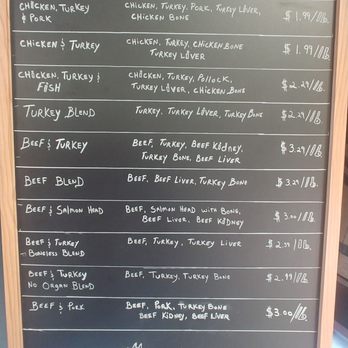 Chicken, Turkey & Pork Chicken, Turkey, Pork, Turkey Liver, Chicken Bone $1.99/lb.
Chicken & Turkey Chicken, Turkey, Chicken Bone Turkey Liver $1.99/lb.
Chicken, Turkey & Fish Chicken, Turkey, Pollock, Turkey Liver, Chicken Bone $2.29/lb.
Turkey Blend Turkey, Turkey Liver, Turkey Bone $2.29/lb.
Beef & Turkey Beef, Turkey, Beef Kidney, Turkey Bone, Beef Liver $3.29/lb.
Beef Blend Beef, Beef Liver, Turkey Bone $3.29/lb.
Beef & Salmon Head Beef, Salmon Head with Bone, Beef Liver, Beef Kidney $3.00/lb.
Beef & Turkey Boneless Blend Beef, Turkey, Turkey Liver $2.99/lb.
Beef & Turkey No Organ Blend Beef, Turkey, Turkey Bone $2.99/lb.
Beef & Pork Beef, Pork, Turkey Bone Beef Kidney, Beef Liver $3.00/lb.